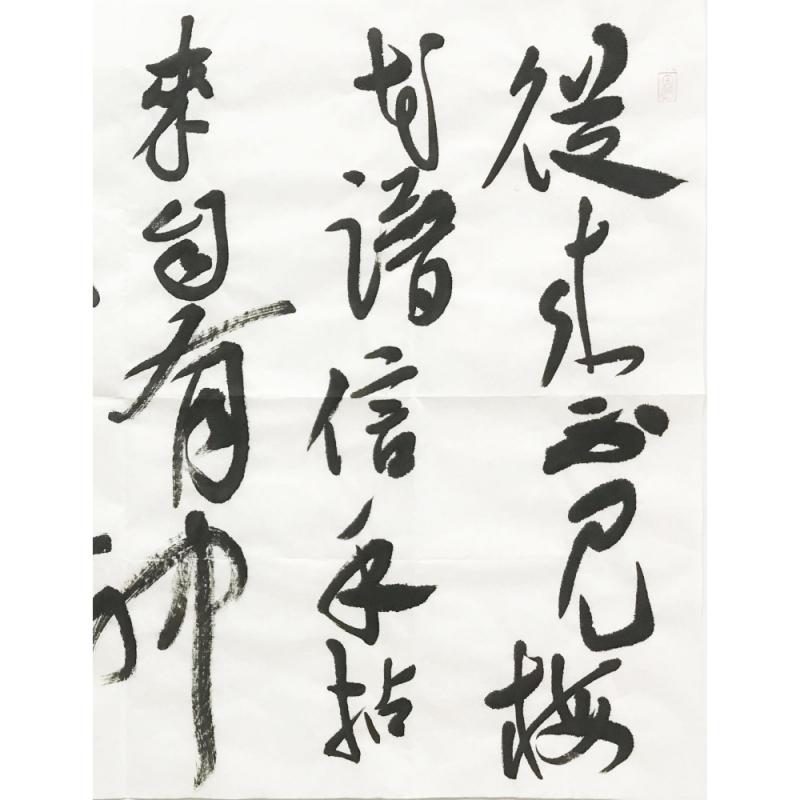 從來不見梅
花譜信手拈
來自有神